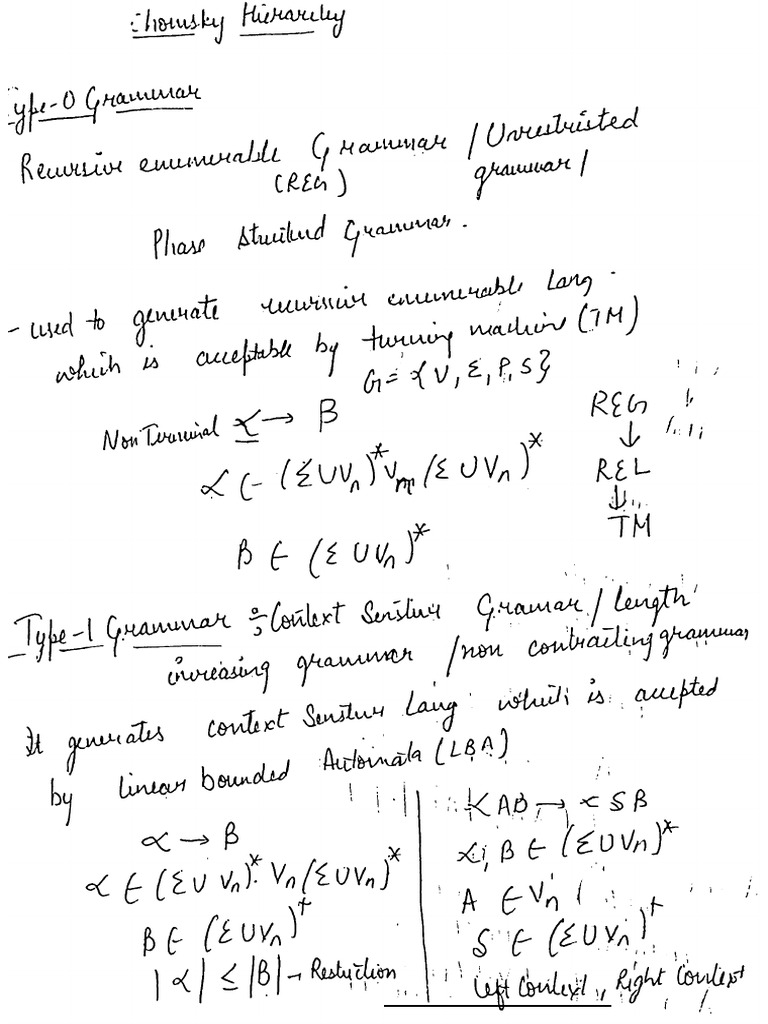 Chomsky Hierarchy
Type-0 Grammar
Recursive enumerable Grammar / Unrestristed
(REG) grammar /
Phase Structured Grammar.
- used to generate recursive enumerable Lang.
which is acceptable by turning machine (TM)
G = {V, Σ, P, S}
Non Terminal α → β
α ∈ (Σ ∪ Vn)* Vn (Σ ∪ Vn)*
β ∈ (Σ ∪ Vn)*
REG
↓
REL
↓
TM
Type-1 Grammar : Context Senstive Gramar / length
increasing grammar / non contracting grammar
It generates context Senstive Lang. which is accepted
by linear bounded Automata (LBA)
α → β
α ∈ (Σ ∪ Vn)* Vn (Σ ∪ Vn)*
β ∈ (Σ ∪ Vn)+
|α| ≤ |β| → Restriction
αAβ → αSβ
α, β ∈ (Σ ∪ Vn)*
A ∈ Vn
S ∈ (Σ ∪ Vn)+
Left Context, Right Context